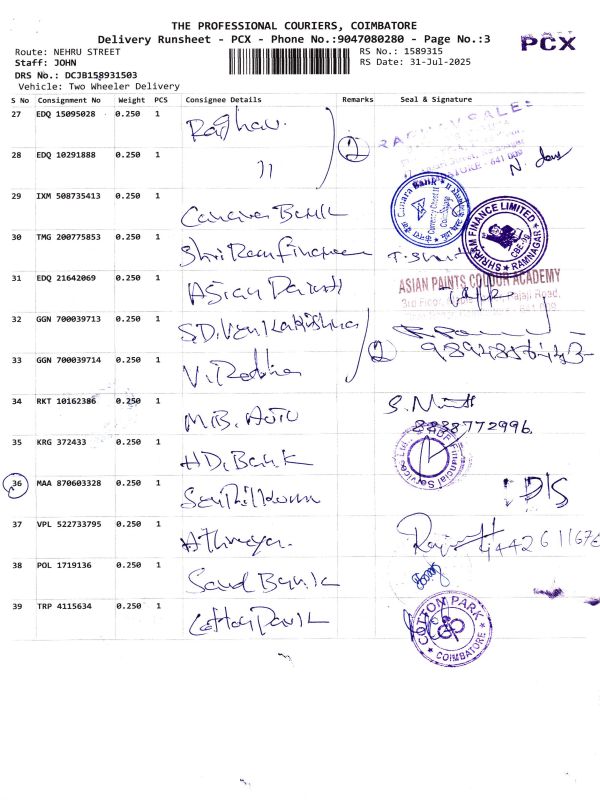 THE PROFESSIONAL COURIERS, COIMBATORE
Delivery Runsheet - PCX - Phone No.:9047080280 - Page No.:3
PCX
Route: NEHRU STREET
RS No.: 1589315
Staff: JOHN
RS Date: 31-Jul-2025
DRS No.: DCJB158931503
Vehicle: Two Wheeler Delivery
S No Consignment No Weight PCS Consignee Details Remarks Seal & Signature
27 EDQ 15095028 0.250 1 Raghav.
28 EDQ 10291888 0.250 1 11 2
29 IXM 508735413 0.250 1 Canara Bank
Canara Bank
30 TMG 200775853 0.250 1 Shri Ram Finance
SHRIRAM FINANCE LIMITED
RAMNAGAR
31 EDQ 21642069 0.250 1 Asian Paints
ASIAN PAINTS COLOUR ACADEMY
3rd Floor, Rajaji Road,
32 GGN 700039713 0.250 1
33 GGN 700039714 0.250 1 V. Radha 2
34 RKT 10162386 0.250 1 M.B. Auto
8838772996
35 KRG 372433 0.250 1 HD. Bank
Financial Services Ltd
36 MAA 870603328 0.250 1
37 VPL 522733795 0.250 1
38 POL 1719136 0.250 1 Bank
39 TRP 4115634 0.250 1 Cotton Park
COTTON PARK
COIMBATORE